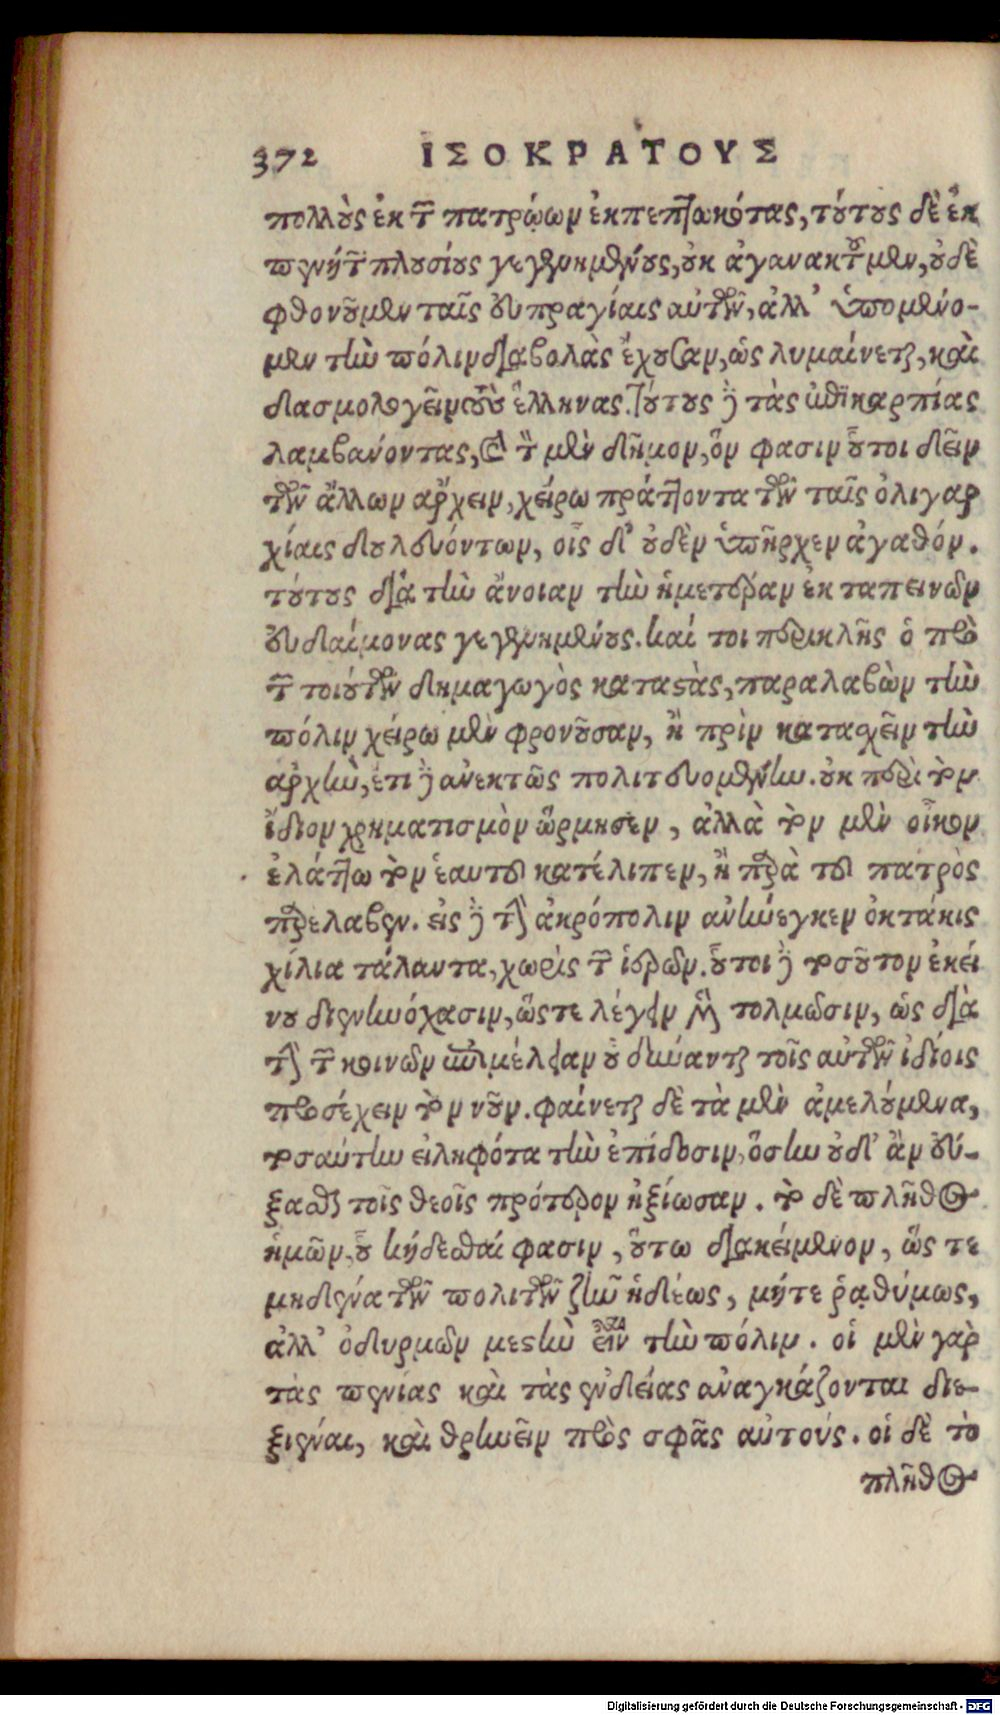 372 ΙΣΟΚΡΑΤΟΥΣ
πολλοὺς ἐκ τῶν πατρῴων ἐκπεπτωκότας, τούτους δὲ ἐκ
πενήτων πλουσίους γεγενημένους, οὐκ ἀγανακτοῦμεν, οὐδὲ
φθονοῦμεν ταῖς εὐπραγίαις αὐτῶν, ἀλλ’ ὑπομένο-
μεν τὴν πόλιν διαβολὰς ἔχουσαν, ὡς λυμαίνεται, καὶ
δασμολογεῖν τοὺς ἕλληνας. τούτους δὲ τὰς ἐπικαρπίας
λαμβανόντας, καὶ τὸν μὲν δῆμον, ὅν φασιν οὗτοι δεῖν
τῶν ἄλλων ἄρχειν, χείρω πράττοντα τῶν ταῖς ὀλιγαρ
χίαις δουλευόντων, οἷς δ’ οὐδὲν ὑπῆρχεν ἀγαθόν.
τούτους διὰ τὴν ἄνοιαν τὴν ἡμετέραν ἐκ ταπεινῶν
εὐδαίμονας γεγενημένους. καί τοι περικλῆς ὁ πρὸ
τῶν τοιούτων δημαγωγὸς καταστὰς, παραλαβὼν τὴν
πόλιν χείρω μὲν φρονοῦσαν, ἢ πρὶν κατασχεῖν τὴν
ἀρχὴν, ἔτι δὲ ἀνεκτῶς πολιτευομένην. οὐκ περὶ τὸν
ἴδιον χρηματισμὸν ὥρμησεν, ἀλλὰ τὸν μὲν οἶκον
ἐλάττω τὸν ἑαυτοῦ κατέλιπεν, ἢ παρὰ τοῦ πατρὸς
παρέλαβεν. εἰς δὲ τὴν ἀκρόπολιν ἀνήνεγκεν ὀκτάκις
χίλια τάλαντα, χωρὶς τῶν ἱερῶν. οὗτοι δὲ τοσοῦτον ἐκεί
νου διενηνόχασιν, ὥστε λέγειν μὲν τολμῶσιν, ὡς διὰ
τὴν τῶν κοινῶν ἐπιμέλειαν οὐ δύνανται τοῖς αὐτῶν ἰδίοις
προσέχειν τὸν νοῦν. φαίνεται δὲ τὰ μὲν ἀμελούμενα,
τοσαύτην εἰληφότα τὴν ἐπίδοσιν, ὅσην οὐδ’ ἂν εὔ-
ξασθαι τοῖς θεοῖς πρότερον ἠξίωσαν. τὸ δὲ πλῆθος
ἡμῶν, οὗ κήδεσθαί φασιν, οὕτω διακείμενον, ὥς τε
μηδένα τῶν πολιτῶν ζῆν ἡδέως, μήτε ῥᾳθύμως,
ἀλλ’ ὀδυρμῶν μεστὴν εἶναι τὴν πόλιν. οἱ μὲν γὰρ
τὰς πενίας καὶ τὰς ἐνδείας ἀναγκάζονται διε-
ξιέναι, καὶ θρηνεῖν πρὸς σφᾶς αὐτούς. οἱ δὲ τὸ
πλῆθος
Digitalisierung gefördert durch die Deutsche Forschungsgemeinschaft - DFG